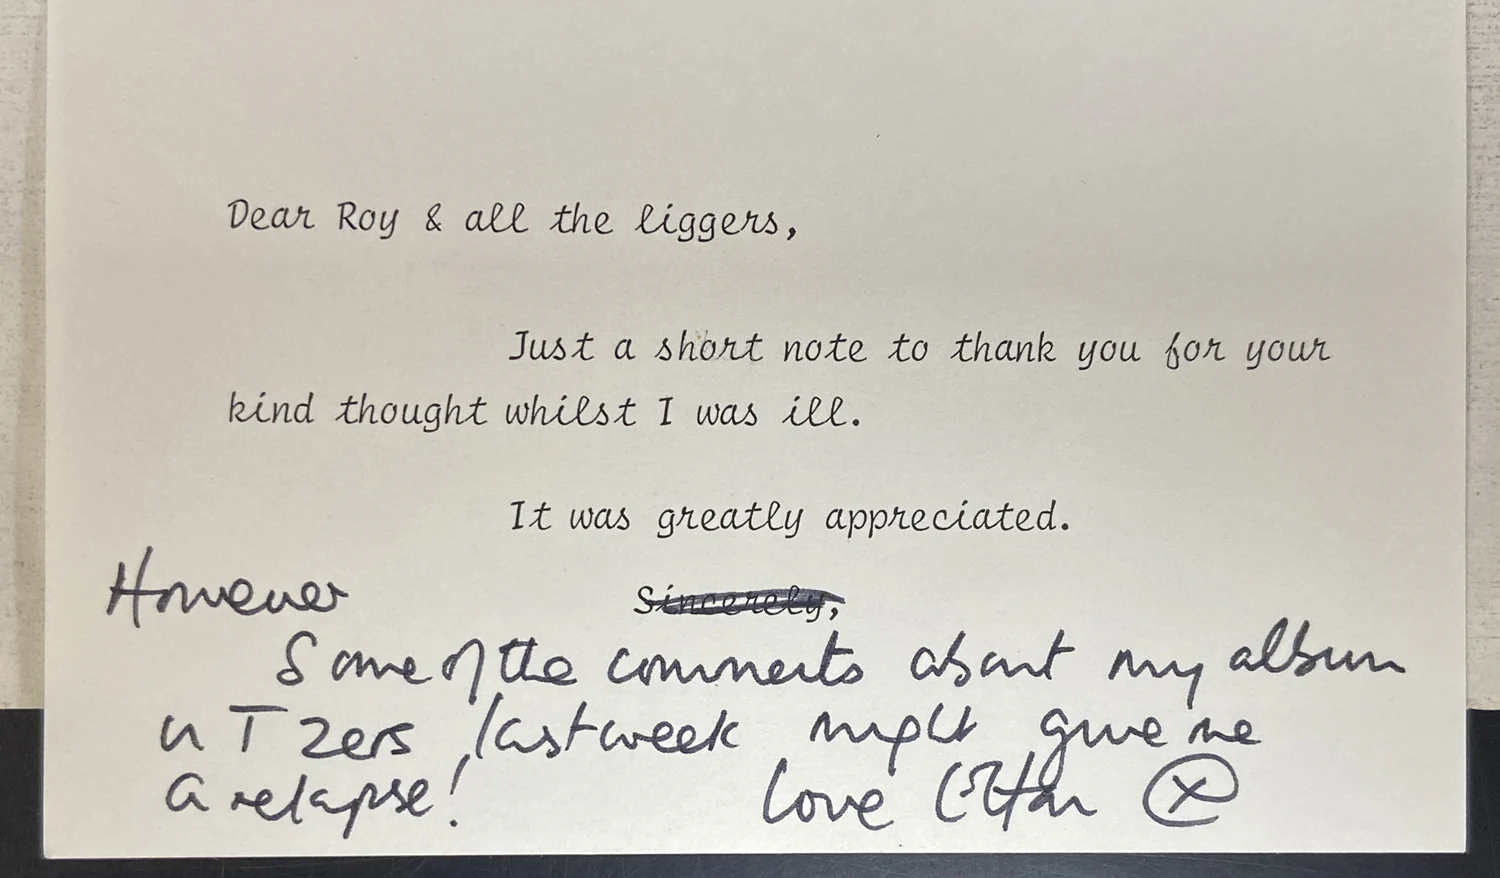 Dear Roy & all the liggers,
Just a short note to thank you for your
kind thought whilst I was ill.
It was greatly appreciated.
However
Sincerely,
Some of the comments about my album
in T Zers last week might give me
a relapse!
love Elton x